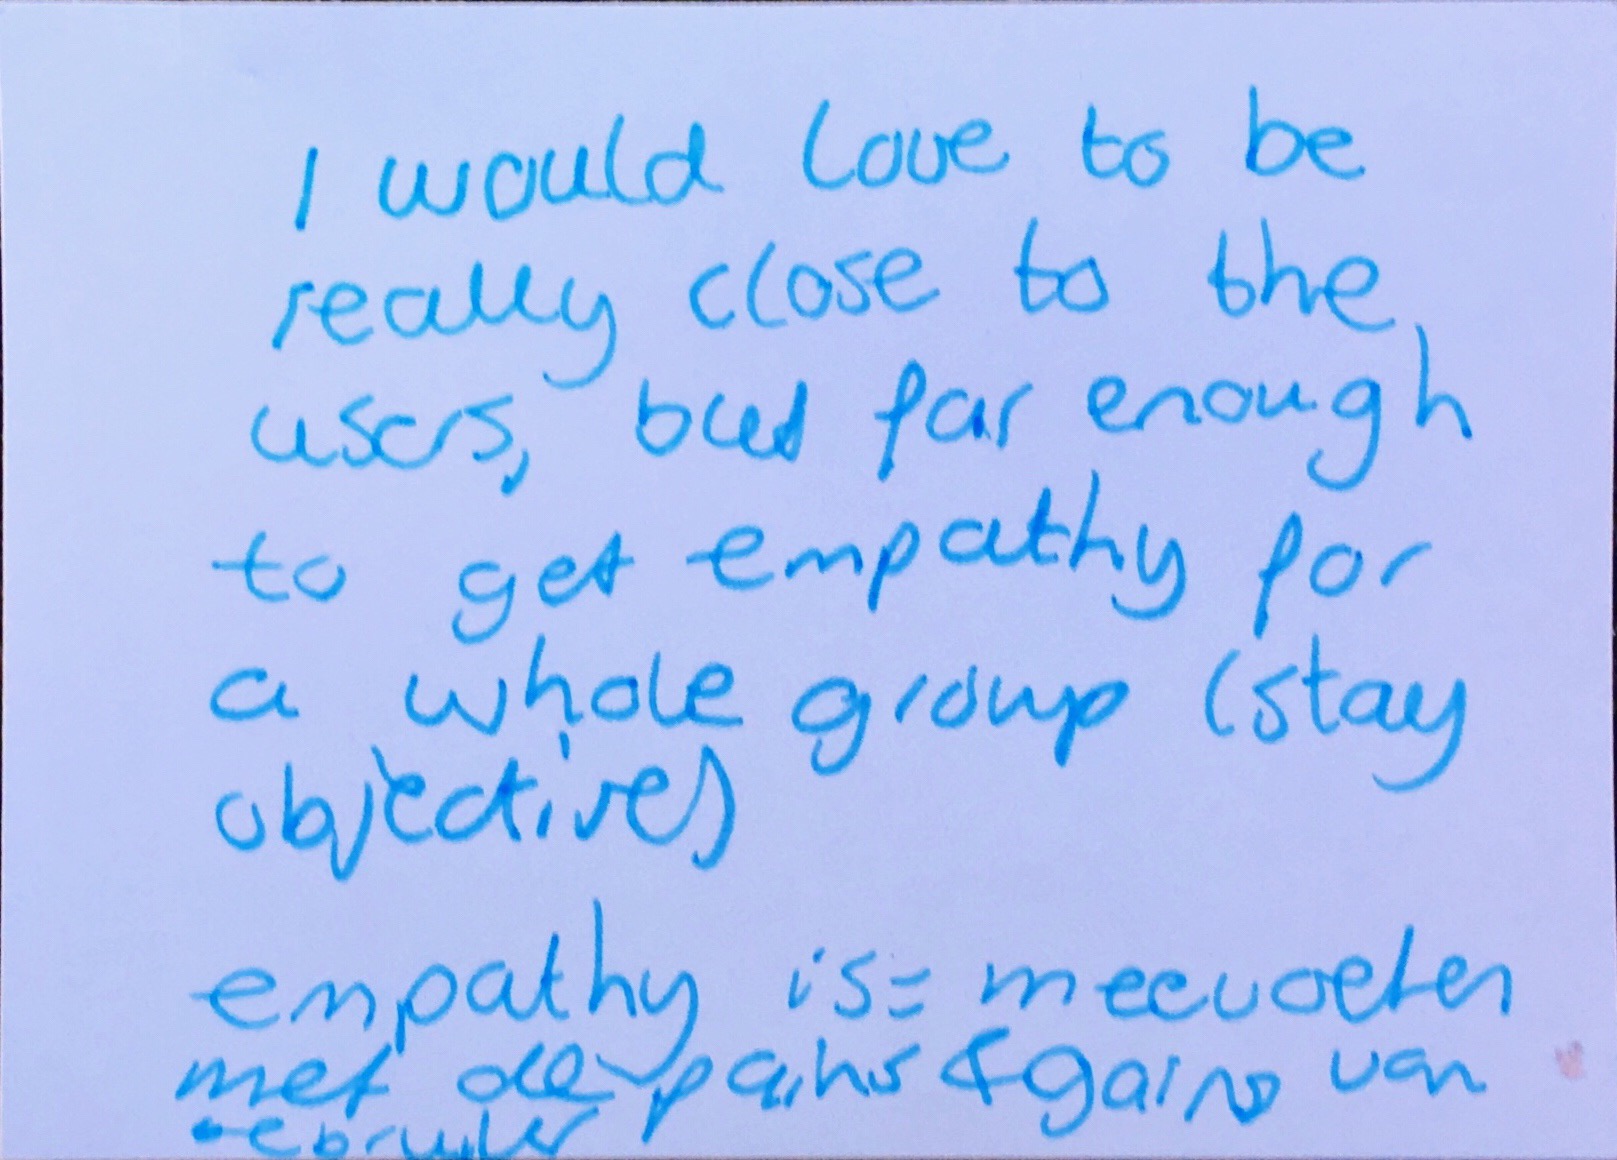 I would love to be
really close to the
users, but far enough
to get empathy for
a whole group (stay
objective)
empathy is= meevoelen
met de pains & gains van
gebruiker